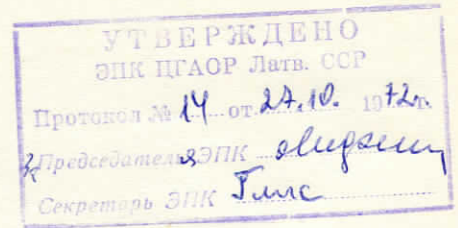 УТВЕРЖДЕНО
ЭПК ЦГАОР Латв. ССР
Протокол № 14 от 27.10. 1972г.
Председатель ЭПК
Секретарь ЭПК